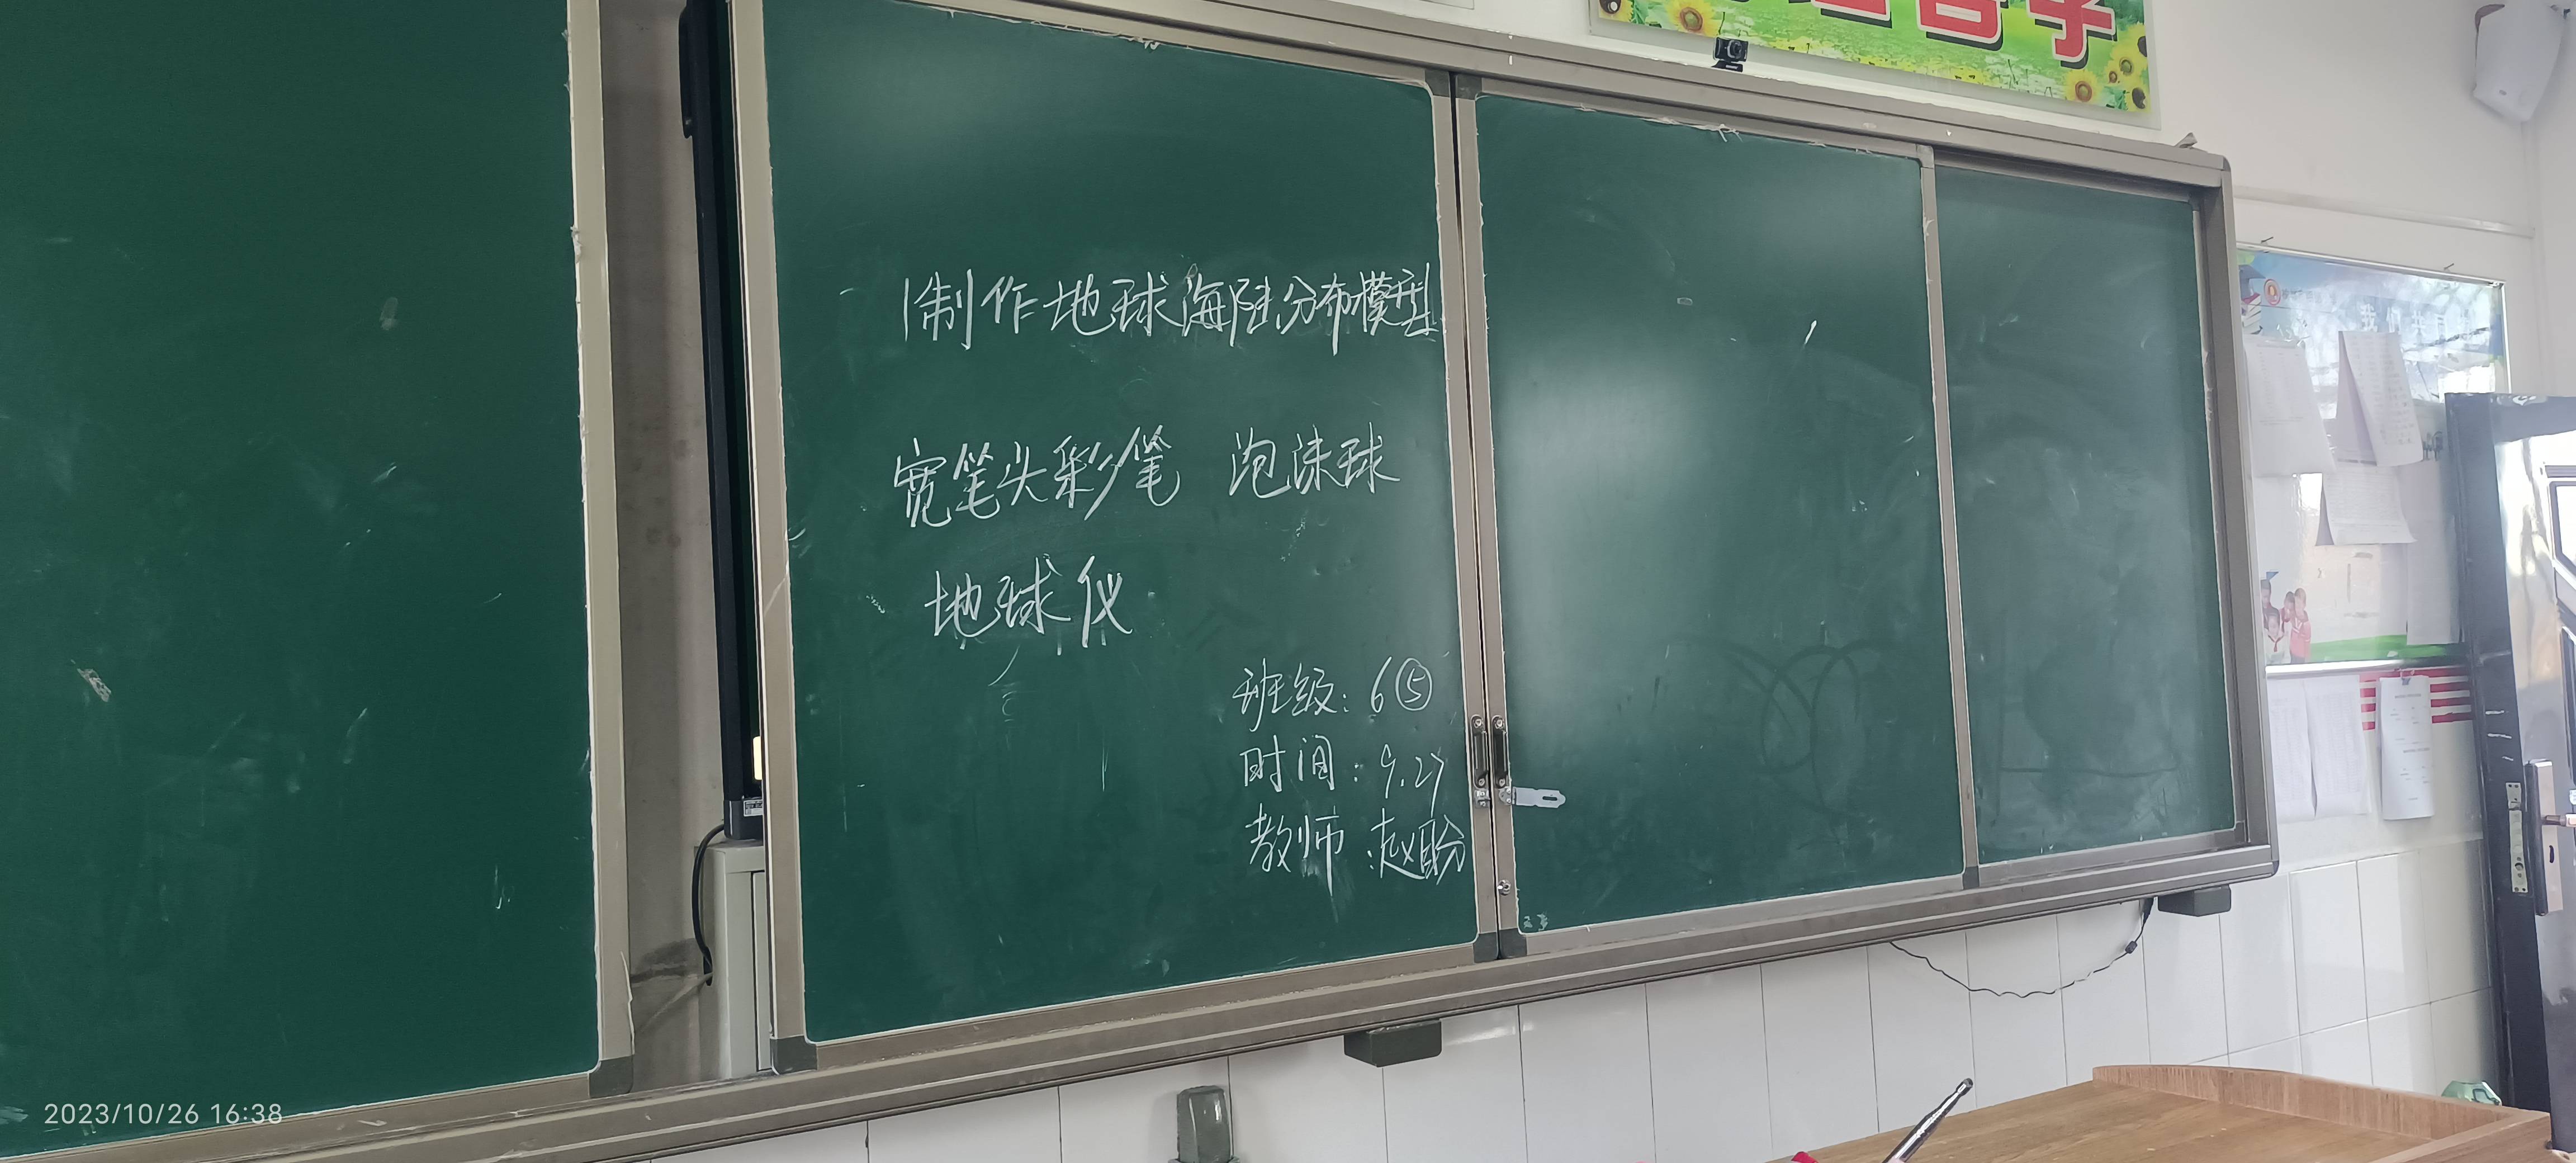 1制作地球海陆分布模型
宽笔头彩笔 泡沫球
地球仪
班级：6⑤
时间：9.27
教师：赵盼
2023/10/26 16:38